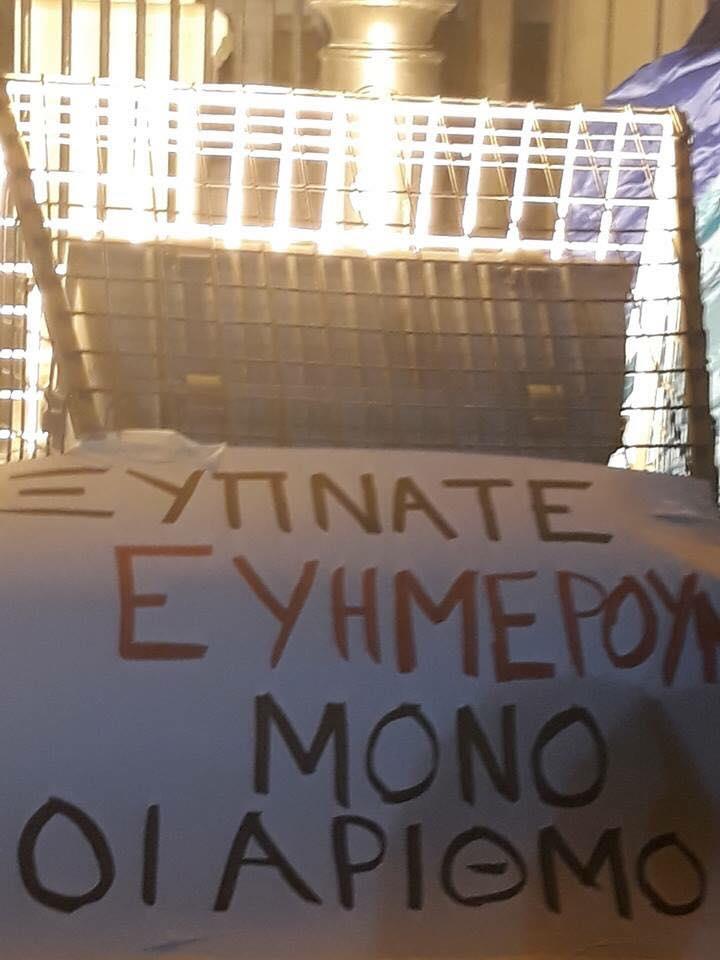 ΞΥΠΝΑΤΕ
ΕΥΗΜΕΡΟΥΝ
ΜΟΝΟ
ΟΙ ΑΡΙΘΜΟ